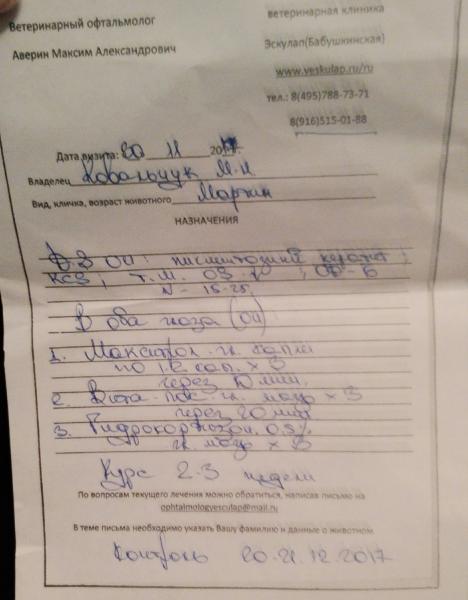 Ветеринарный офтальмолог
Аверин Максим Александрович
ветеринарная клиника
Эскулап(Бабушкинская)
www.veskulap.ru/ru
тел.: 8(495)788-73-71
8(916)515-01-88
Дата визита: 20 11 2017.
Владелец Ковальчук М.И.
Вид, кличка, возраст животного Мартин
НАЗНАЧЕНИЯ
ДЗ ОИ: кератит;
КСЗ; Т.М. OS- ; OD-
N- 15-25
В оба глаза (ОИ)
1. Макситрол гл. капли
по 1-2 кап. х 3
через 10 мин.
2. Вита-Пос гл. мазь х 3
через 20 мин
3. Гидрокортизон 0,5%
гл. мазь х 3
Курс 2-3 недели
По вопросам текущего лечения можно обратиться, написав письмо на
ophtalmologyesculap@mail.ru
В теме письма необходимо указать Вашу фамилию и данные о животном
Контроль 20-21.12.2017